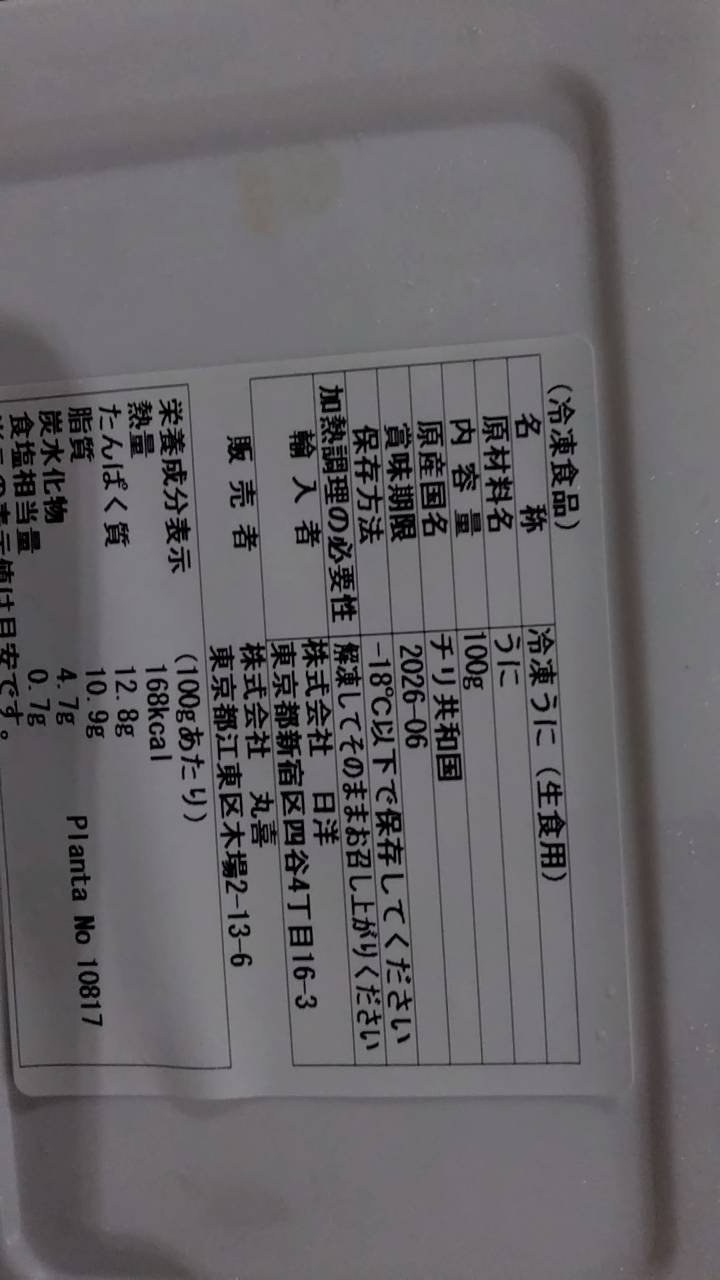 (冷凍食品)
名称 冷凍うに(生食用)
原材料名 うに
内容量 100g
原産国名 チリ共和国
賞味期限 2026-06
保存方法 -18℃以下で保存してください
加熱調理の必要性 解凍してそのままお召し上がりください
輸入者 株式会社 日洋
東京都新宿区四谷4丁目16-3
販売者 株式会社 丸喜
東京都江東区木場2-13-6
栄養成分表示 (100gあたり)
熱量 168kcal
たんぱく質 12.8g
脂質 10.9g
炭水化物 4.7g
食塩相当量 0.7g
Planta No 10817
表示値は目安です。